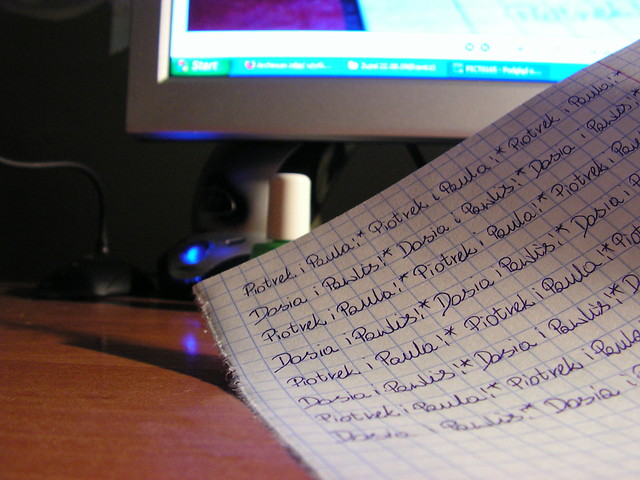 Start
Piotrek i Paula!* Piotrek i Paula!* Piotrek i Paula!*
Dosia i Pawliś!* Dosia i Pawliś!* Dosia i Pawliś!*
Piotrek i Paula!* Piotrek i Paula!* Piotrek i Pau
Dosia i Pawliś!* Dosia i Pawliś!* Dosia i P
Piotrek i Paula!* Piotrek i Paula!* Piot
Dosia i Pawliś!* Dosia i Pawliś!* D
Piotrek i Paula!* Piotrek i Paula
Dosia i Pawliś!* Dosia i